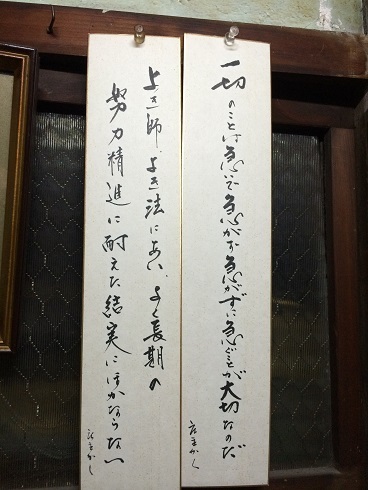 一切のことは急いで急がず急がずに急ぐことが大切なのだ
よき師、よき法にあい、よく長期の
努力精進に耐えた結実にほかならない